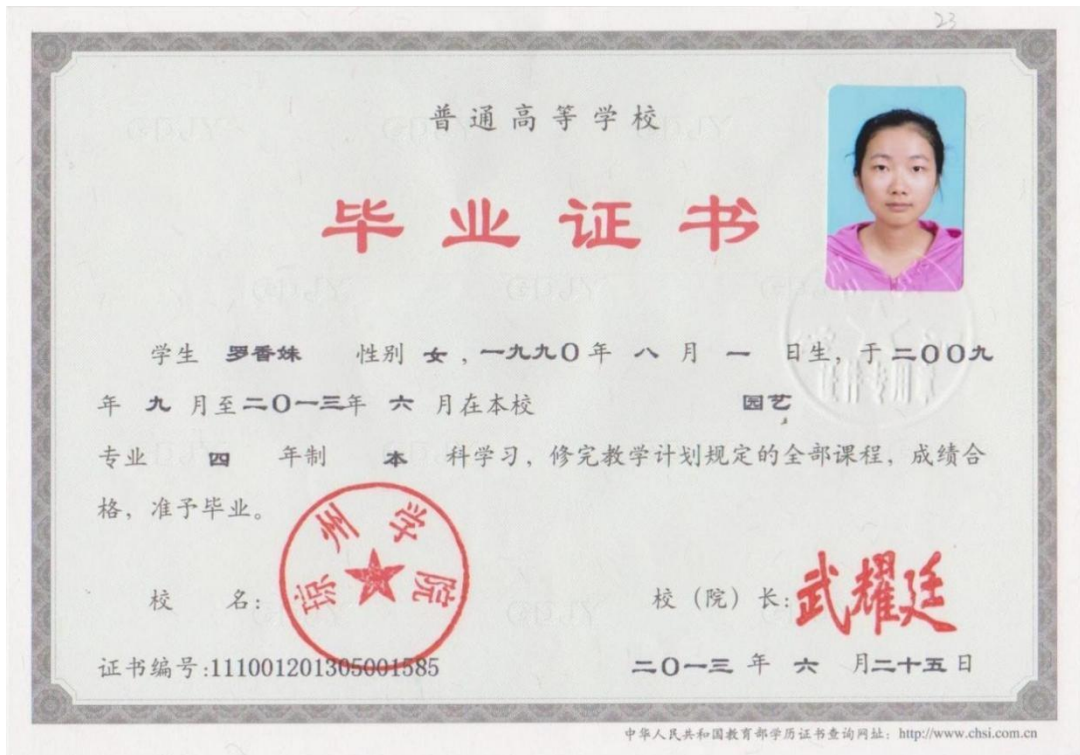 23
普通高等学校
毕业证书
学生 罗香妹 性别 女，一九九〇年 八 月 一 日生，于二〇〇九
年 九 月至二〇一三年 六 月在本校 园艺
专业 四 年制 本 科学习，修完教学计划规定的全部课程，成绩合
格，准予毕业。
琼州学院
校 名： 校（院）长：武耀廷
证书编号:111001201305001585 二〇一三 年 六 月二十五日
中华人民共和国教育部学历证书查询网址：http://www.chsi.com.cn